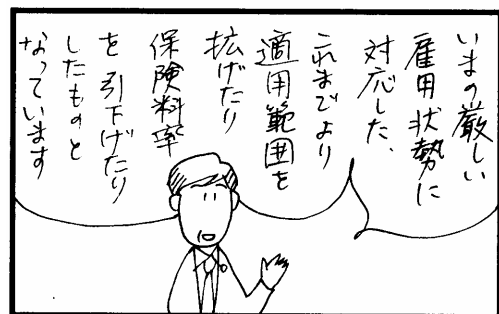 いまの厳しい
雇用状勢に
対応した、
これまでより
適用範囲を
拡げたり
保険料率
を引下げたり
したものと
なっています